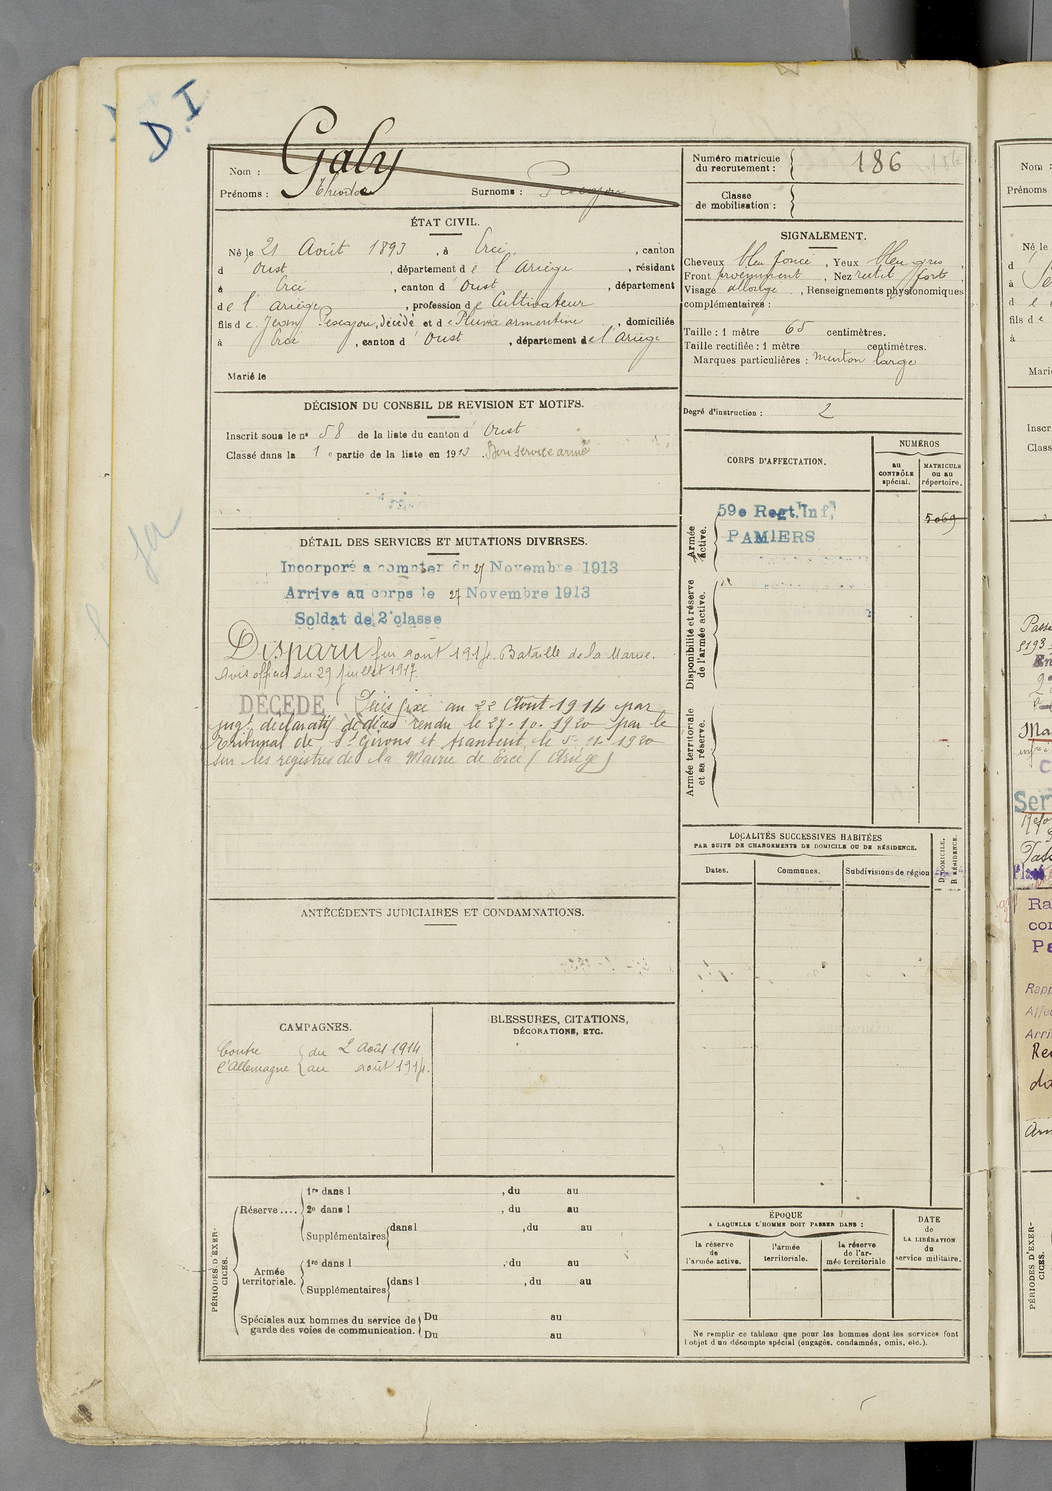 D.I
Nom : Galy
Prénoms : Théodore Surnoms :
Numéro matricule
du recrutement : 186
Classe
de mobilisation :
ÉTAT CIVIL.
Né le 21 Août 1893, à Ercé, canton
d Oust, département de l'Ariège, résidant
à Ercé, canton d'Oust, département
de l'ariège, profession de Cultivateur
fils de Jean, décédé et de armentine, domiciliés
à Ercé, canton d'Oust, département de l'Ariège
Marié le
SIGNALEMENT.
Cheveux foncé, Yeux bleu gris,
Front proéminent, Nez rectil. forte
Visage allongé, Renseignements physionomiques
complémentaires :
Taille : 1 mètre 65 centimètres.
Taille rectifiée : 1 mètre centimètres.
Marques particulières : menton large
Degré d'instruction : 2
DÉCISION DU CONSEIL DE REVISION ET MOTIFS.
Inscrit sous le n° 58 de la liste du canton d'Oust
Classé dans la 1e partie de la liste en 1913. Bon service armé
CORPS D'AFFECTATION.
NUMÉROS
au
CONTRÔLE
spécial.
MATRICULE
ou au
répertoire.
Armée
active.
59e Regt. Inf.
PAMIERS
5069
Disponibilité et réserve
de l'armée active.
Armée territoriale
et sa réserve.
DÉTAIL DES SERVICES ET MUTATIONS DIVERSES.
Incorporé a compter du 27 Novembre 1913
Arrive au corps le 27 Novembre 1913
Soldat de 2e classe
Disparu fin août 1914. Bataille de la Marne.
Avis officiel du 29 juillet 1917.
DÉCÉDÉ Décès fixé au 22 Août 1914 par
jugt déclaratif de décès rendu le 27-10-1920 par le
Tribunal de St Girons et transcrit le 5-12-1920
sur les registres de la Mairie de Ercé (Ariège)
LOCALITÉS SUCCESSIVES HABITÉES
PAR SUITE DE CHANGEMENTS DE DOMICILE OU DE RÉSIDENCE.
Dates.
Communes.
Subdivisions de région
D DOMICILE.
R RÉSIDENCE.
ANTÉCÉDENTS JUDICIAIRES ET CONDAMNATIONS.
CAMPAGNES.
Contre du 2 Août 1914
l'Allemagne au août 1914.
BLESSURES, CITATIONS,
DÉCORATIONS, ETC.
PÉRIODES D'EXER-
CICES.
Réserve....
1re dans l , du au
2e dans l , du au
Supplémentaires dans l , du au
Armée
territoriale.
1re dans l , du au
Supplémentaires dans l , du au
Spéciales aux hommes du service de
garde des voies de communication.
Du au
Du au
ÉPOQUE
A LAQUELLE L'HOMME DOIT PASSER DANS :
la réserve
de
l'armée active.
l'armée
territoriale.
la réserve
de l'ar-
mée territoriale
DATE
de
LA LIBÉRATION
du
service militaire.
Ne remplir ce tableau que pour les hommes dont les services font
l'objet d'un décompte spécial (engagés, condamnés, omis, etc.).
Nom :
Prénoms
Né le
fils de
à